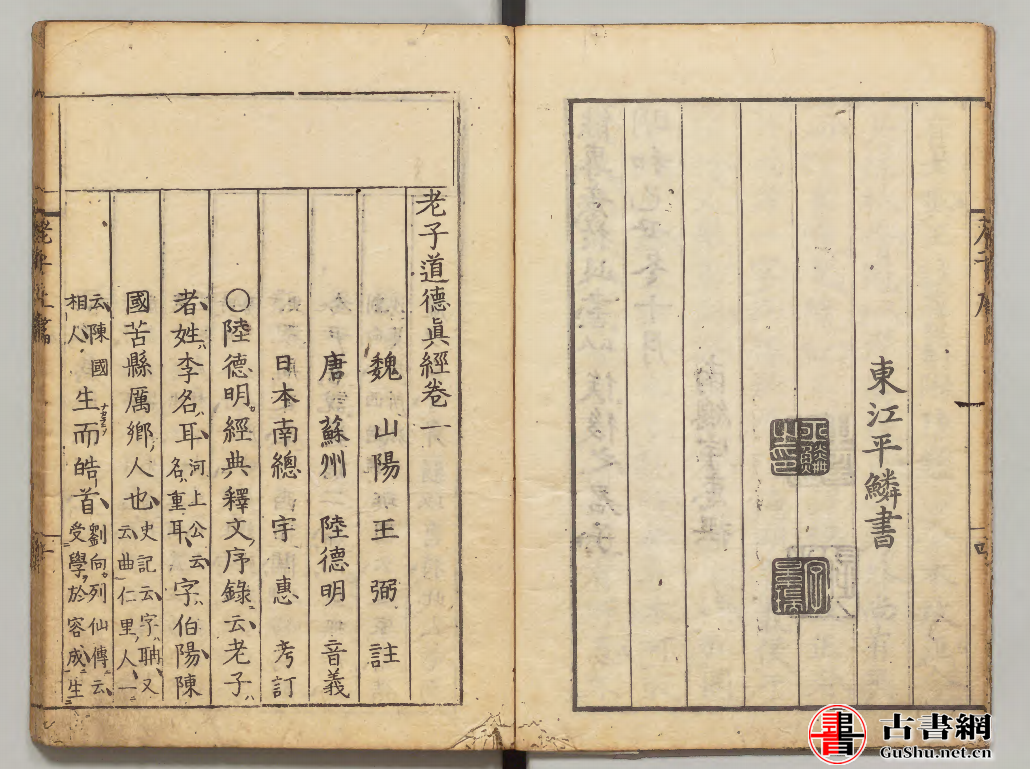 東江平鱗書
老子道德眞經卷一
魏 山陽 王弼 註
唐 蘇州 陸德明 音義
日本 南總 宇惠 考訂
〇陸德明經典釋文序錄云老子
者姓李名耳河上公云名重耳字伯陽陳
國苦縣厲鄉人也史記云字聃又云曲仁里人一
云陳國相人生而皓首劉向列仙傳云受學於容成生
書 古書網
GuShu.net.cn